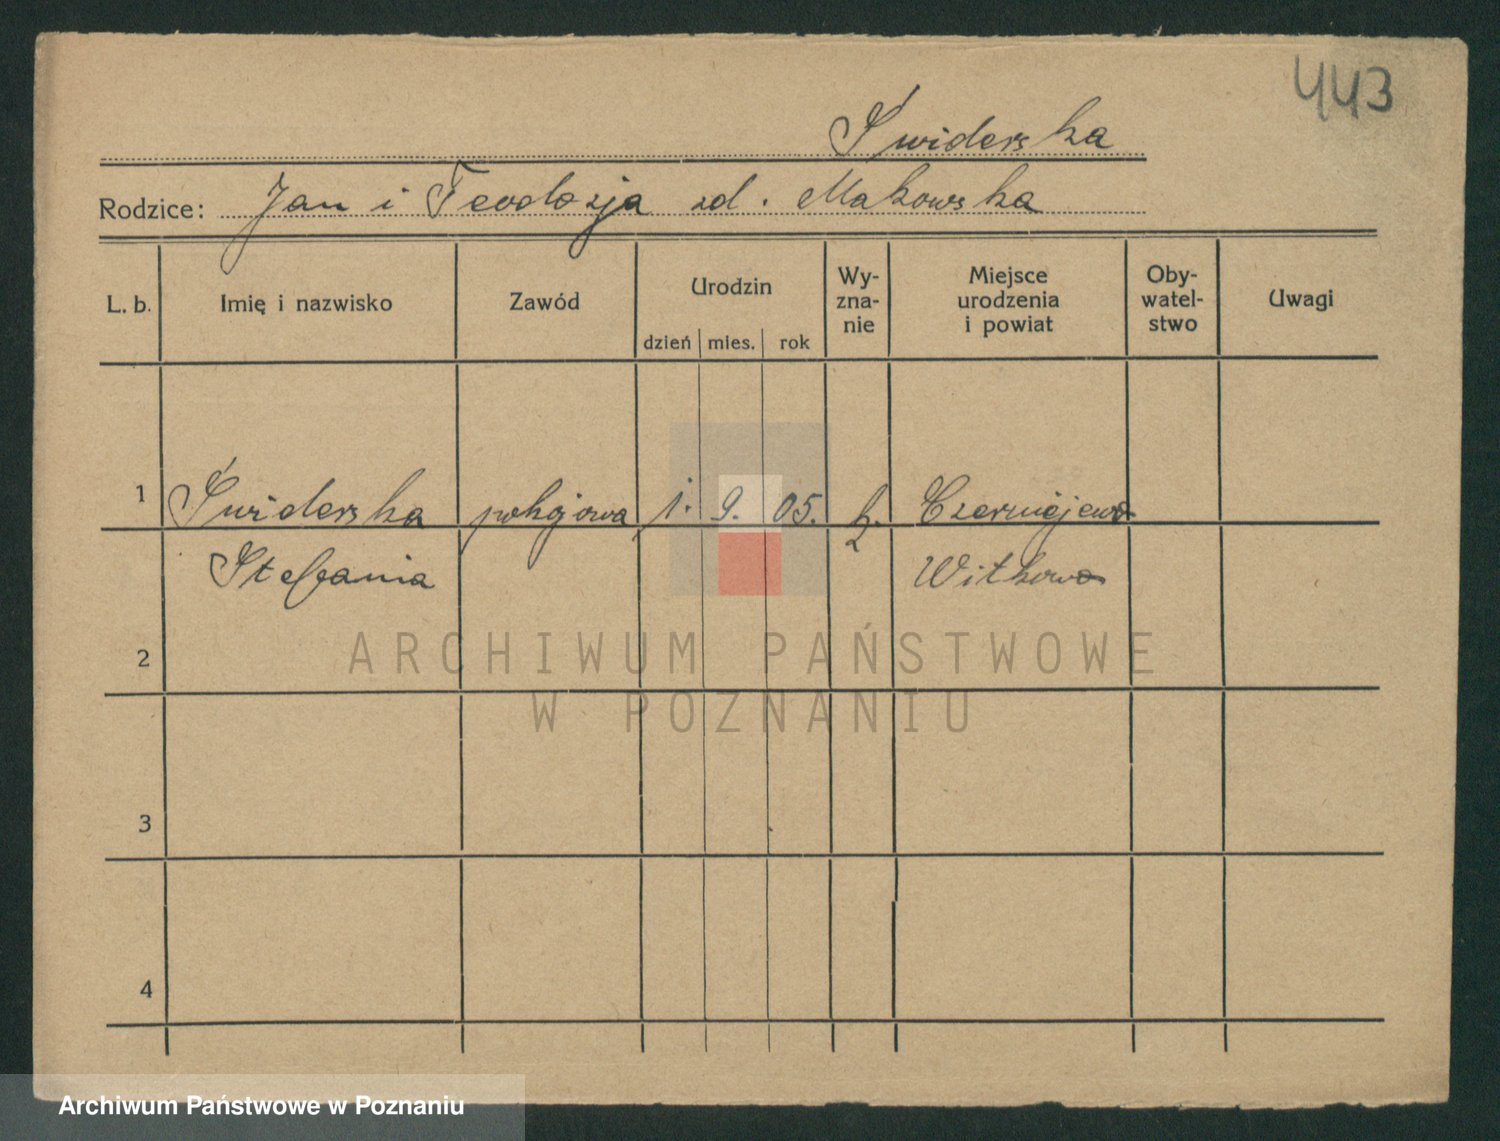 443
Świderska
Rodzice: Jan i Teodozja zd. Makowska
L. b. Imię i nazwisko Zawód Urodzin dzień mies. rok Wy- zna- nie Miejsce urodzenia i powiat Oby- watel- stwo Uwagi
1 Świderska pokojowa 1. 9. 05. k. Czerniejewo
Stefania Witkowo
2
ARCHIWUM PAŃSTWOWE
W POZNANIU
3
4
Archiwum Państwowe w Poznaniu